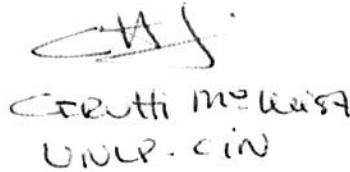 CIRUTTI Mª Luisa
UNLP - CIN